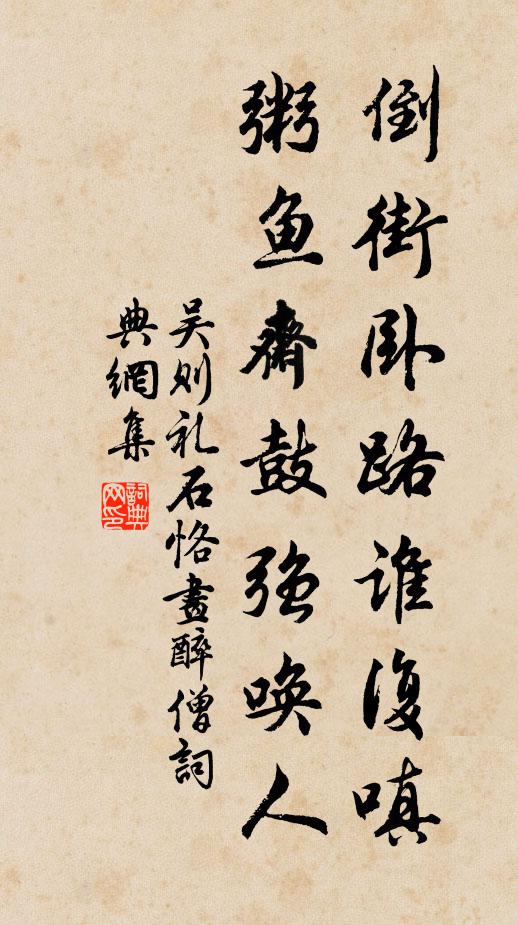 倒街卧路谁復嗔
粥鱼齋鼓强唤人
吴则礼石恪畫醉僧詞
典網集
詞典网印